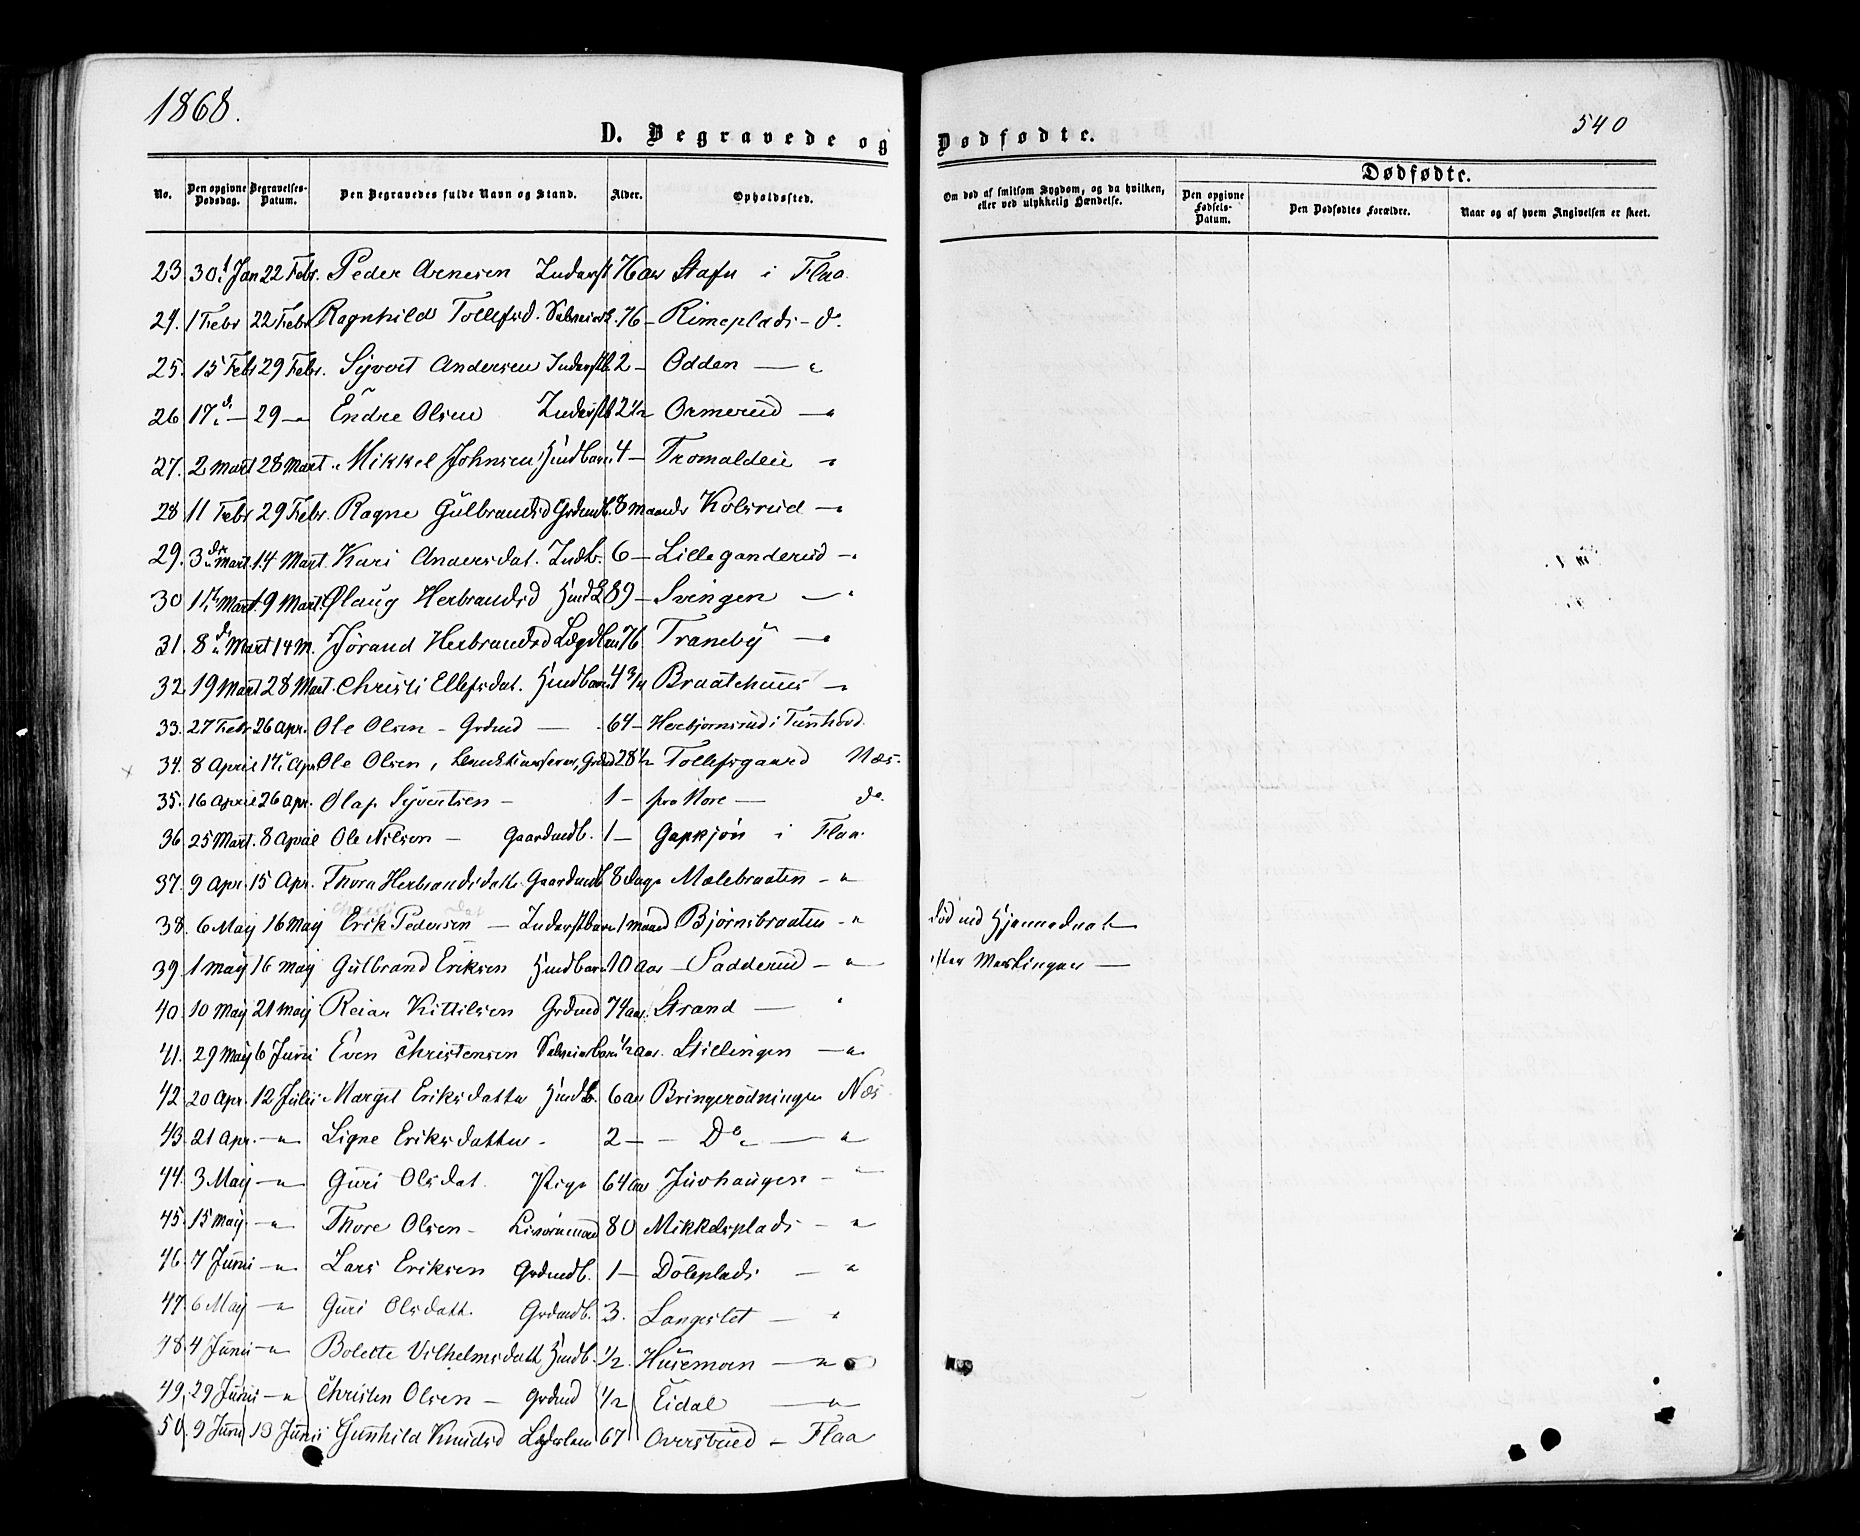 1868.
540
D. Begravede og Dødfødte.
No. Den opgivne Dødsdag. Begravelses-Datum. Den Begravedes fulde Navn og Stand. Alder. Opholdssted. Om død af smitsom Sygdom, og da hvilken, eller ved ulykkelig Hændelse. Dødfødte. Den opgivne Fødsels-Datum. Den Dødfødtes Forældre. Naar og af hvem Angivelsen er skeet.
23. 30. Jan 22 Febr. Peder Arnesen Inderst 76 aar Stafn i Flaa.
24. 1 Febr 22 Febr Ragnhild Tollefsd. 76 — Rimeplads — do.
25. 15 Febr 29 Febr. Syvert Andersen Inderstb. 2 — Odden — "
26 17 — 29 — Endre Olsen Inderstb 2 1/2 Ormerud — "
27. 2 Mart 28 Mart. Mikkel Johnsen Husmdbarn 4 — Tromaldeie "
28 11 Febr 29 Febr. Ragne Gulbrandsd Grdmdb. 8 maander Kolsrud — "
29. 3 Mart. 14 Mart. Kari Andersdat. Indb. 6 — Lilleganderud — "
30 1 Mart. 9 Mart. Ølaug Herbrandsd 89 — Svingen — "
31. 8 Mart 14 M. Jørand Herbrandsd Lægdlem 76 Traneby — "
32. 19 Mart 28 Mart. Christi Ellefsdat. Husmdbarn 4 3/4 Braatehuus — "
33. 27 Febr 26 Apr. Ole Olsen — Grdmd — 64 — Herbjørnsrud i Tunhovd.
34. 8 April 17 Apr Ole Olsen, Grdmd 28 1/2 Tollefsgaard Næs.
35. 16 April 26 Apr. Olaf Syvertsen — 1 — fra Nore — do.
36 25 Mart. 8 April Ole Nilsen — Gaardmdb. 1 — Gapkjøn i Flaa.
37. 9 Apr. 15 Apr. Thora Herbrandsdatt. Gaardmdb 8 Dage Malebraaten — "
38. 6 May 16 May Erik Pedersen — Inderstbarn 1 maaned Bjørnsbraaten — " død ved
39. 1 May 16 May Gulbrand Eriksen Husmdbarn 10 aar — Sadderud — " efter Meslinger —
40. 10 May 21 May Reiar Kittilsen Grdmd 74 aar. Strand — "
41. 29 May 6 Juni Even Christensen 1/2 aar. Stillingen — "
42. 20 Apr. 12 Juli Margit Eriksdatter Husmdb. 6 aar Bringerødningen Næs
43. 21 Apr. — " Signe Eriksdatter — 2 — — Do — "
44. 3 May — " Guri Olsdat. Pige 64 aar Juvhaugen — "
45. 15 May. — " Thore Olsen — 80 Mikkelsplads — "
46. 7 Juni — " Lars Eriksen Grdmdb. 1 — Døleplads — "
47. 6 May — " Guri Olsdatt. Grdmdb. 3. Langeslet — "
48. 4 Juni — " Bolette Vilhelmsdatt Husmdb. 1/2 Husemoen — "
49. 29 Juni — " Christen Olsen — Grdmd 1/2 Eidal — "
50. 9 Juni 19 Juni Gunhild Knudsd Lægdslem 67 Aversrud — Flaa